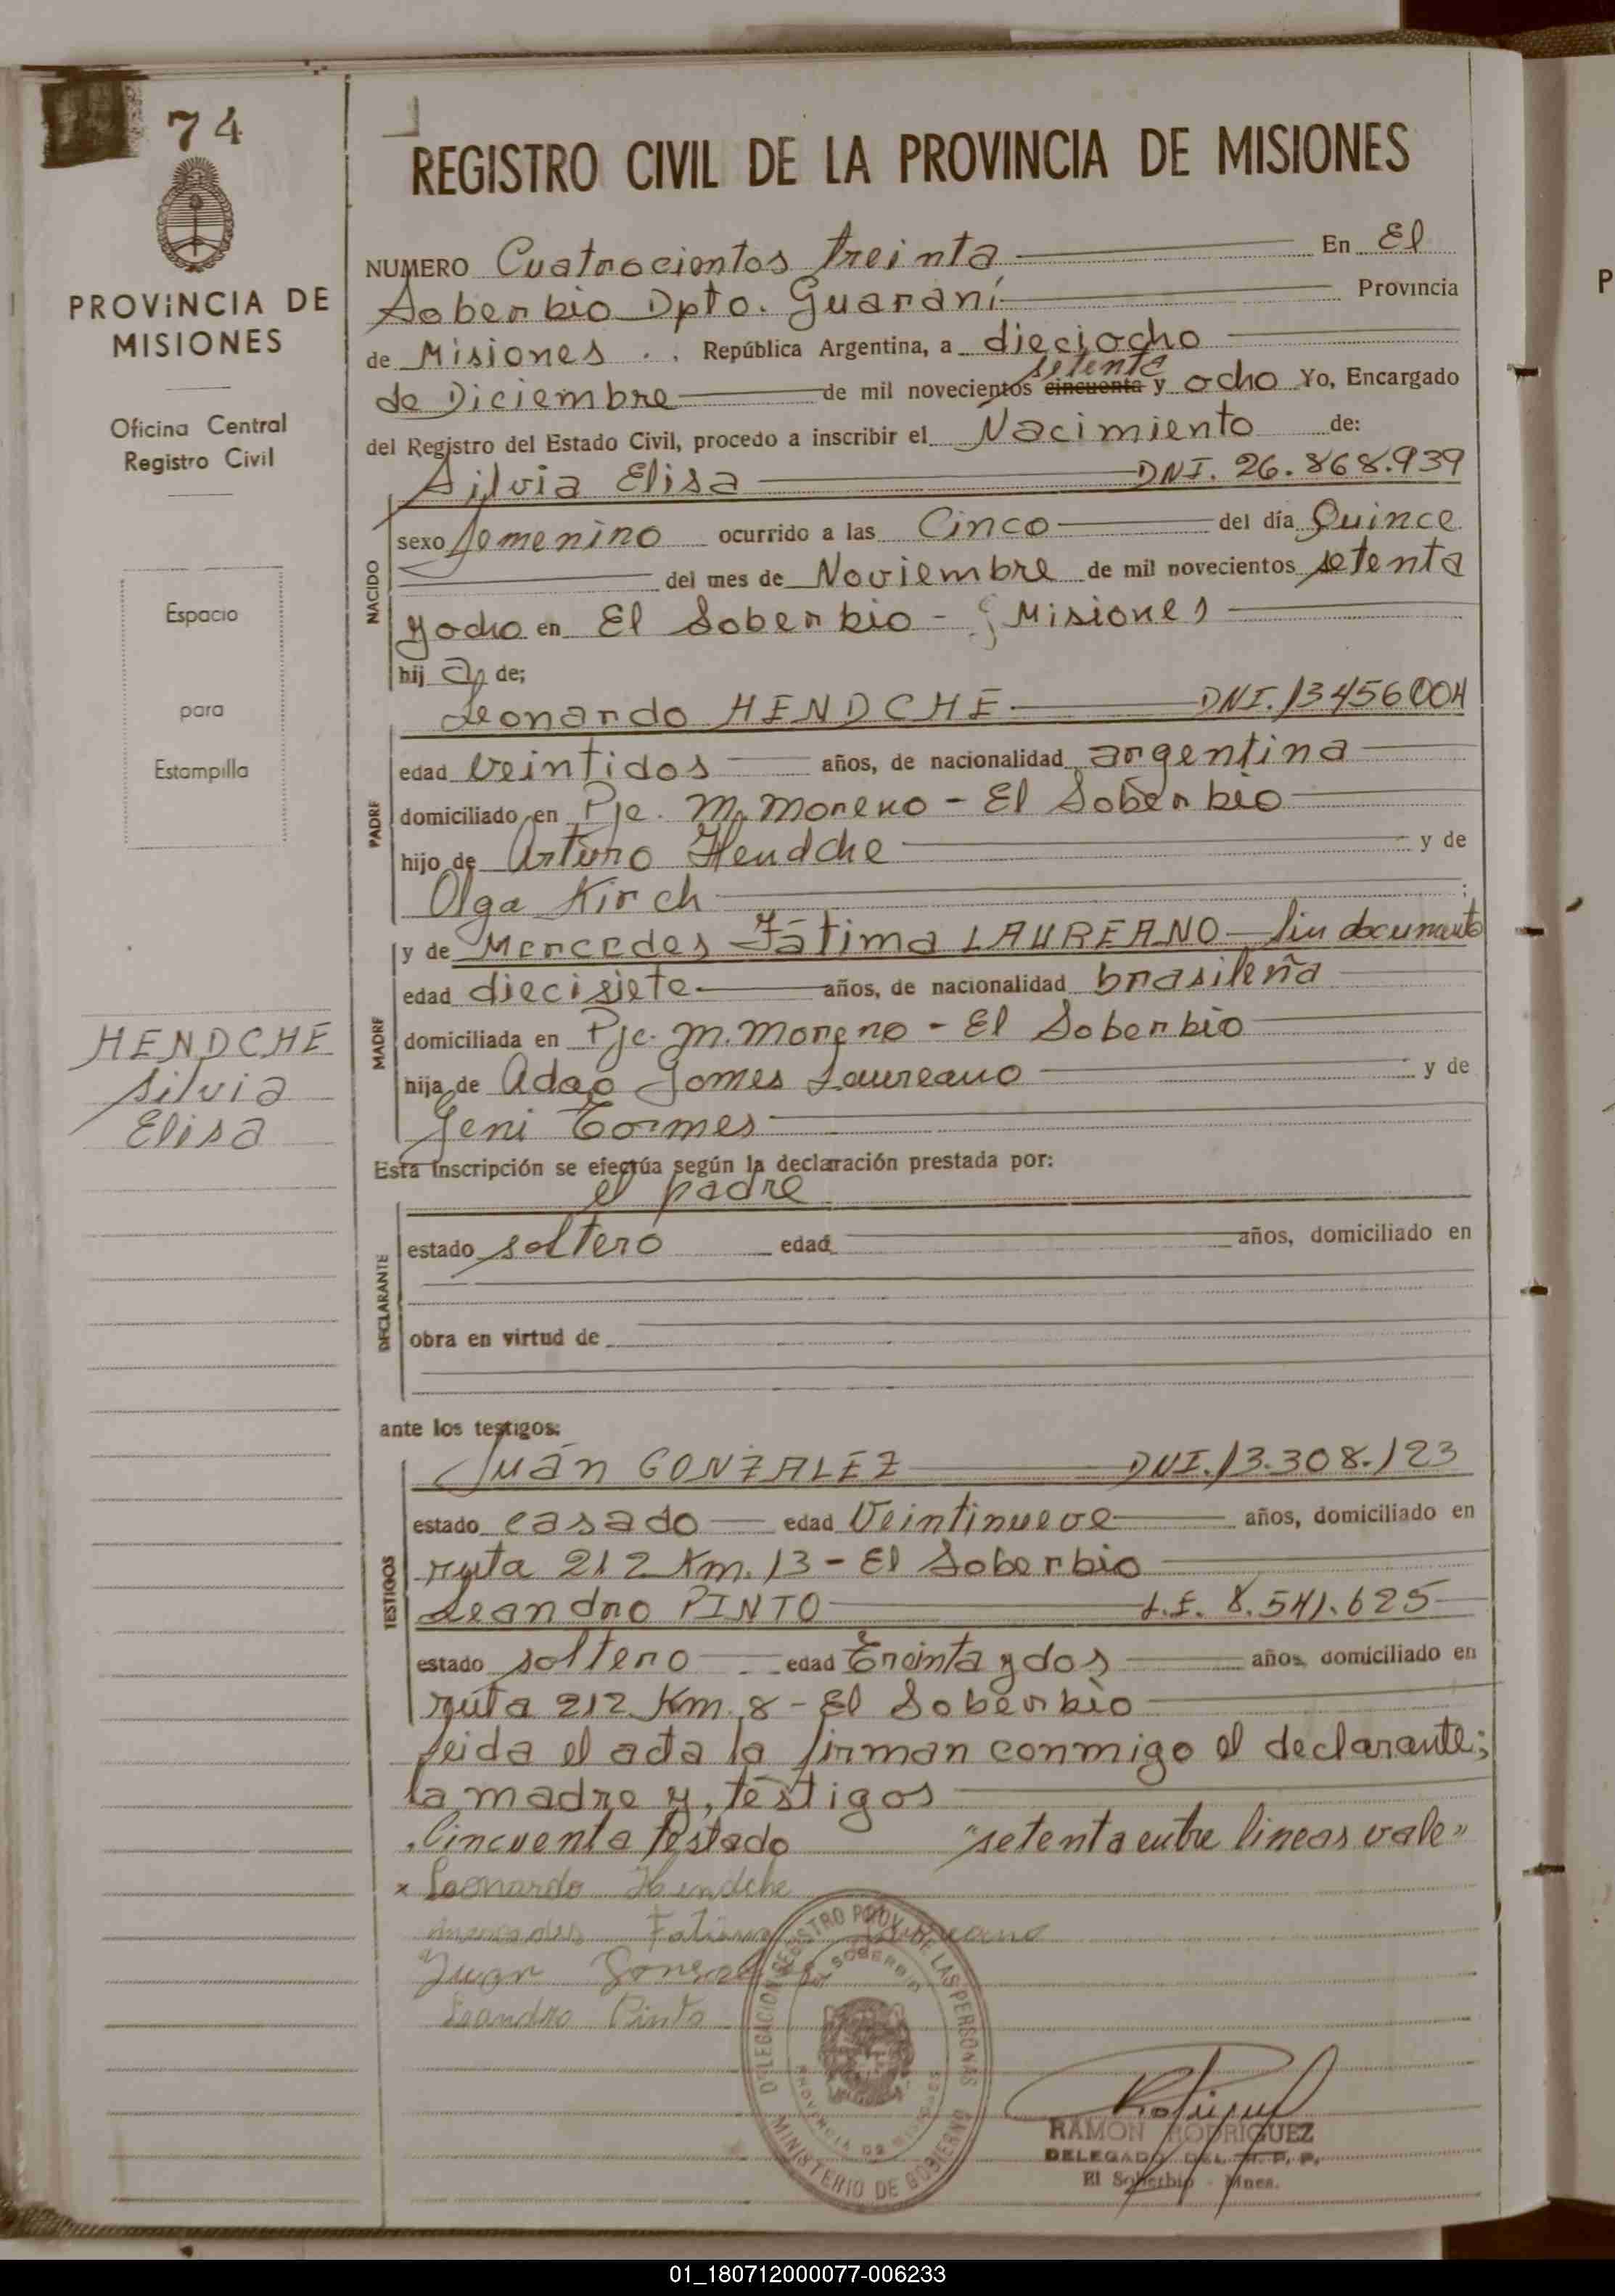 74
PROVINCIA DE
MISIONES
Oficina Central
Registro Civil
Espacio
para
Estampilla
HENDCHE
Silvia
Elisa
REGISTRO CIVIL DE LA PROVINCIA DE MISIONES
NUMERO Cuatrocientos treinta En El
Soberbio Dpto. Guaraní Provincia
de Misiones República Argentina, a dieciocho
setenta
de Diciembre de mil novecientos cincuenta y ocho Yo, Encargado
del Registro del Estado Civil, procedo a inscribir el Nacimiento de:
Silvia Elisa DNI. 26.868.939
NACIDO
sexo femenino ocurrido a las Cinco del día Quince
del mes de Noviembre de mil novecientos setenta
y ocho en El Soberbio - Misiones
hij a de;
Leonardo HENDCHE DNI. 13456004
PADRE
edad veintidos años, de nacionalidad argentina
domiciliado en Pje. M. Moreno - El Soberbio
hijo de Arturo Hendche y de
Olga Kirch ;
y de Mercedes Fátima LAUREANO Sin documento
MADRE
edad diecisiete años, de nacionalidad brasileña
domiciliada en Pje. M. Moreno - El Soberbio
hija de Adao Gomes Laureano y de
Jeni Tormes
Esta inscripción se efectúa según la declaración prestada por:
el padre
DECLARANTE
estado soltero edad años, domiciliado en
obra en virtud de
ante los testigos:
Juán GONZALEZ DNI. 13.308.123
TESTIGOS
estado casado edad Veintinueve años, domiciliado en
ruta 212 Km. 13 - El Soberbio
Leandro PINTO L.E. 8.541.625
estado soltero edad Treinta y dos años domiciliado en
ruta 212 Km. 8 - El Soberbio
leida el acta la firman conmigo el declarante;
la madre y, testigos
Cincuenta testado "setenta entre lineas vale"
x Leonardo Hendche
Mercedes Fatima Laureano
Juan Gonzalez
Leandro Pinto
DELEGACION REGISTRO PROV. DE LAS PERSONAS
EL SOBERBIO
PROVINCIA DE MISIONES
MINISTERIO DE GOBIERNO
RAMON RODRIGUEZ
DELEGADO DEL R. P. P.
El Soberbio - Mnes.
P
01_180712000077-006233